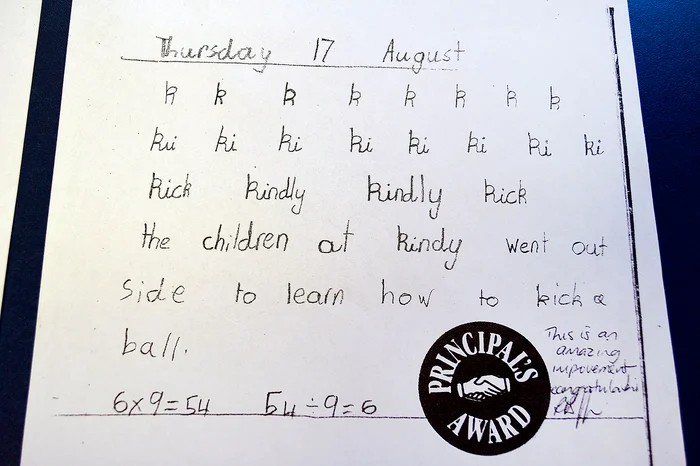 Thursday 17 August
k k k k k k k k
ki ki ki ki ki ki ki ki
kick kindly kindly kick
the children at kindy went out
side to learn how to kick a
ball.
6x9=54 54÷9=6
PRINCIPAL'S
AWARD
This is an
amazing
impovement